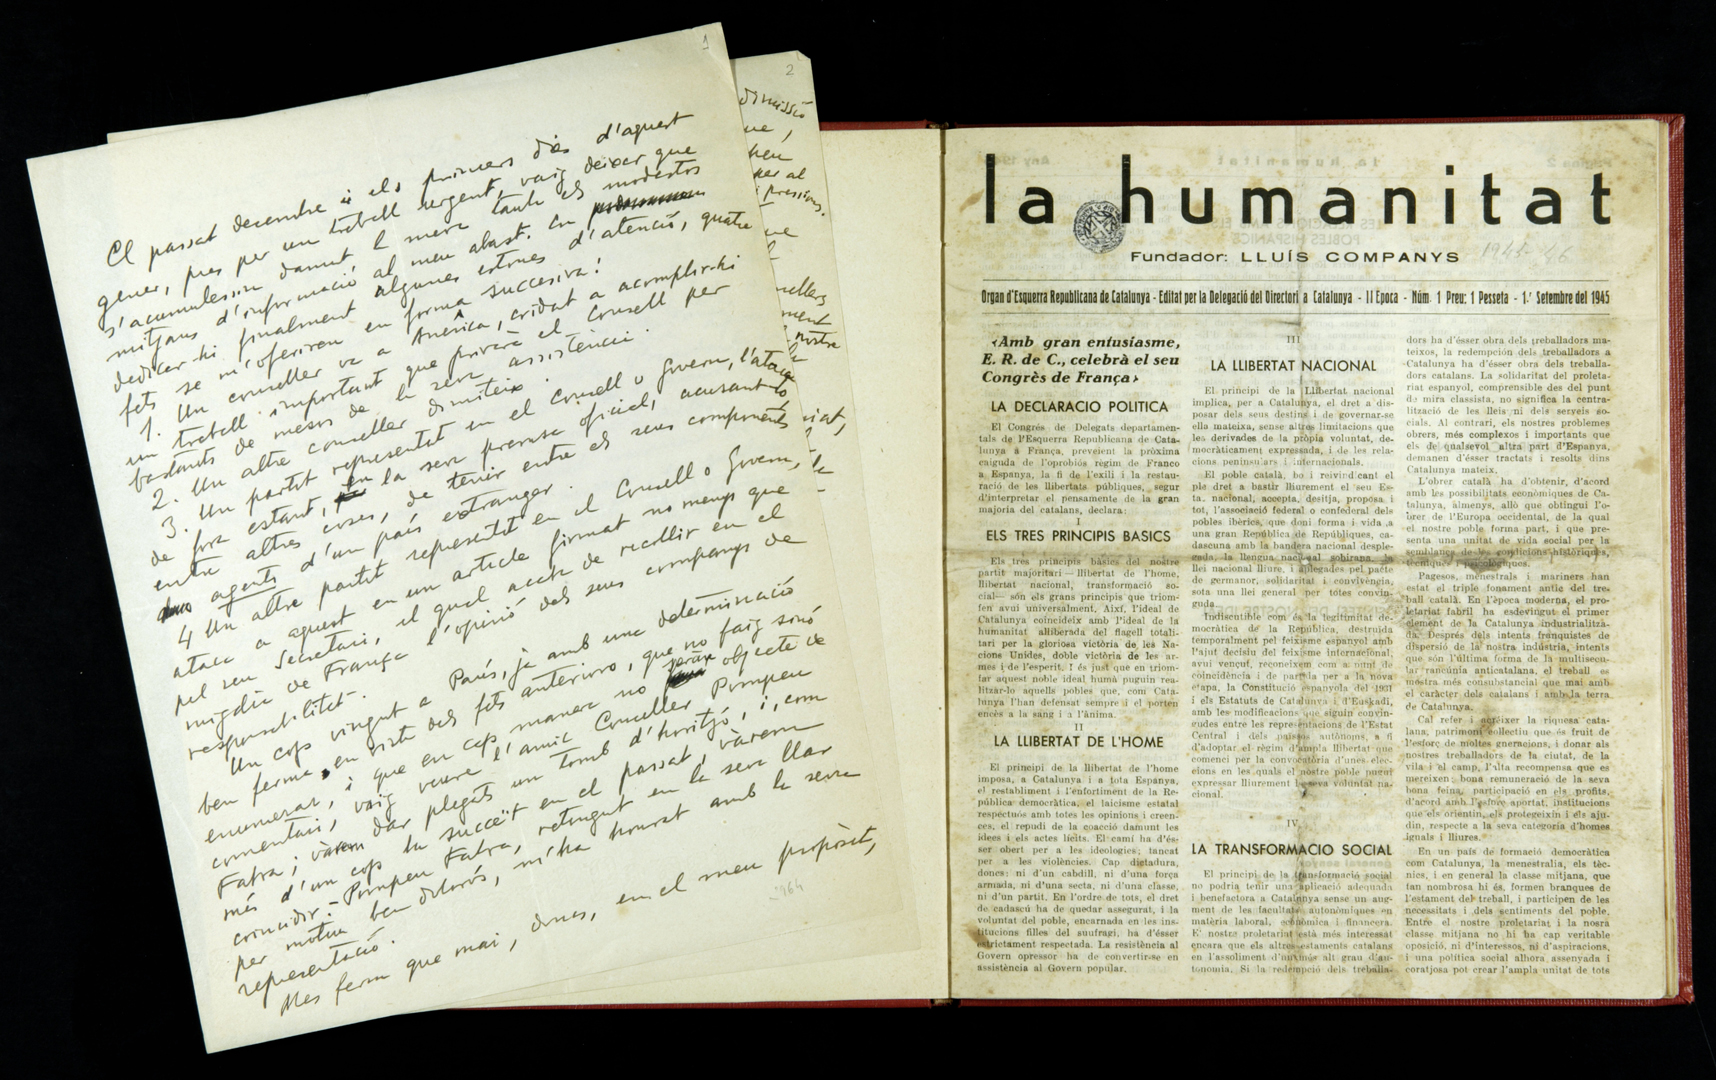 1
El passat decembre i els primers dies d'aquest
gener, pres per un treball urgent, vaig deixar que
s'acumulessin damunt la meva taula els modestos
mitjans d'informació al meu abast. En
dedicar-hi finalment algunes estones d'atenció, quatre
fets se m'oferiren en forma successiva:
1. Un conseller va a Amèrica, cridat a acomplir-hi
un treball important que privarà el Consell per
bastants de mesos de la seva assistència.
2. Un altre conseller dimiteix.
3. Un partit representat en el Consell o Govern, l'ataca
de fora estant, en la seva premsa oficial, acusant-lo
entre altres coses, de tenir entre els seus components
agents d'un país estranger.
4 Un altre partit representat en el Consell o Govern,
ataca a aquest en un article firmat no menys que
pel seu Secretari, el qual acaba de recollir en el
migdia de França l'opinió dels seus companys de
responsabilitat.
Un cop vingut a París, ja amb una determinació
ben ferma, en vista dels fets anteriors, que no faig sinó
enumerar, i que en cap manera no seran objecte de
comentari, vaig veure l'amic Conseller Pompeu
Fabra; vàrem dar plegats un tomb d'horitzó, i, com
més d'un cop ha succeït en el passat, vàrem
coincidir. Pompeu Fabra, retingut en la seva llar
per motiu ben dolorós, m'ha honrat amb la seva
representació.
Més ferm que mai, doncs, en el meu propòsit,
1964
2
dimissió
ue,
heu
per al
pressions.
que
nsellers
ment
nostre
la
iat,
la
la humanitat
Fundador: LLUÍS COMPANYS
1945-46
Organ d'Esquerra Republicana de Catalunya - Editat per la Delegació del Directori a Catalunya - II Epoca - Núm. 1 Preu: 1 Pesseta - 1.r Setembre del 1945
«Amb gran entusiasme,
E. R. de C., celebrà el seu
Congrès de França»
LA DECLARACIO POLITICA
El Congrés de Delegats departamen-
tals de l'Esquerra Republicana de Cata-
lunya a França, preveient la pròxima
caiguda de l'oprobiós règim de Franco
a Espanya, la fi de l'exili i la restau-
ració de les llibertats públiques, segur
d'interpretar el pensamente de la gran
majoria del catalans, declara:
I
ELS TRES PRINCIPIS BASICS
Els tres principis bàsics del nostre
partit majoritari— llibertat de l'home,
llibertat nacional, transformació so-
cial— són els grans principis que triom-
fen avui universalment. Així, l'ideal de
Catalunya coincideix amb l'ideal de la
humanitat alliberada del flagell totali-
tari per la gloriosa victòria de les Na-
cions Unides, doble victòria de les ar-
mes i de l'esperit. I és just que en triom-
far aquest noble ideal humà puguin rea-
litzàr-lo aquells pobles que, com Cata-
lunya l'han defensat sempre i el porten
encès a la sang i a l'ànima.
II
LA LLIBERTAT DE L'HOME
El principi de la llibertat de l'home
imposa, a Catalunya i a tota Espanya,
el restabliment i l'enfortiment de la Re-
pública democràtica, el laicisme estatal
respectuós amb totes les opinions i creen-
ces, el repudi de la coacció damunt les
idees i els actes lícits. El camí ha d'és-
ser obert per a les ideologies; tancat
per a les violències. Cap dictadura,
doncs: ni d'un cabdill, ni d'una força
armada, ni d'una secta, ni d'una classe,
ni d'un partit. En l'ordre de tots, el dret
de cadascú ha de quedar assegurat, i la
voluntat del poble, encarnada en les ins-
titucions filles del sufragi, ha d'ésser
estrictament respectada. La resistència al
Govern opressor ha de convertir-se en
assistència al Govern popular.
III
LA LLIBERTAT NACIONAL
El principi de la LLibertat nacional
implica, per a Catalunya, el dret a dis-
posar dels seus destins i de governar-se
ella mateixa, sense altres limitacions que
les derivades de la pròpia voluntat, de-
mocràticament expressada, i de les rela-
cions peninsulars i internacionals.
El poble català, bo i reivindicant el
ple dret a bastir lliurement el seu Es-
ta. nacional, accepta, desitja, proposa i
tot, l'associació federal o confederal dels
pobles ibèrics, que doni forma i vida a
una gran República de Repúbliques, ca-
dascuna amb la bandera nacional desple-
gada, la llengua nacional sobirana, la
llei nacional lliure, i aplegades pel pacte
de germanor, solidaritat i convivència,
sota una llei general per totes convin-
guda.
Indiscutible com és la legitimitat de-
mocràtica de la República, destruida
temporalment pel feixisme espanyol amb
l'ajut decisiu del feixisme internacional,
avui vençut, reconeixem com a punt de
coincidència i de partida per a la nova
etapa, la Constitució espanyola del 1931
i els Estatuts de Catalunya i d'Euskadi,
amb les modificacions que siguin convin-
gudes entre les representacions de l'Estat
Central i dels països autònons, a fi
d'adoptar el règim d'ampla llibertat que
comenci per la convocatòria d'unes elec-
cions en les quals el nostre poble pugui
expressar lliurement la seva voluntat na-
cional.
IV
LA TRANSFORMACIO SOCIAL
El principi de la transformació social
no podria tenir una aplicació adequada
i benefactora a Catalunya sense un aug-
ment de les facultats autonòmiques en
matèria laboral, econòmica i financera.
E' nostre proletariat està més interessat
encara que els altres estaments catalans
en l'assoliment d'un més alt grau d'au-
tonomia. Si la redempció dels treballa-
dors ha d'ésser obra dels treballadors ma-
teixos, la redempció dels treballadors a
Catalunya ha d'ésser obra dels treballa-
dors catalans. La solidaritat del proleta-
riat espanyol, comprensible des del punt
de mira classista, no significa la centra-
lització de les lleis ni dels serveis so-
cials. Al contrari, els nostres problemes
obrers, més complexos i importants que
els de qualsevol altra part d'Espanya,
demanen d'ésser tractats i resolts dins
Catalunya mateix.
L'obrer català ha d'obtenir, d'acord
amb les possibilitats econòmiques de Ca-
talunya, àlmenys, allò que obtingui l'o-
brer de l'Europa occidental, de la qual
el nostre poble forma part, i que pre-
senta una unitat de vida social per la
semblança de les condicions històriques,
tècniques i psicològiques.
Pagesos, menestrals i mariners han
estat el triple fonament antic del tre-
ball català. En l'època moderna, el pro-
letariat fabril ha esdevingut el primer
element de la Catalunya industrialitza-
da. Després dels intents franquistes de
dispersió de la nostra indústria, intents
que són l'última forma de la multisecu-
lar rancúnia anticatalana, el treball es
mostra més consubstancial que mai amb
el caràcter dels catalans i amb la terra
de Catalunya.
Cal refer i acréixer la riquesa cata-
lana, patrimoni collectiu que és fruit de
l'esforç de moltes gneracions, i donar als
nostres treballadors de la ciutat, de la
vila i el camp, l'alta recompensa que es
mereixen: bona remuneració de la seva
bona feina, participació en els profits,
d'acord amb l'esforç aportat, institucions
que els orientin, els protegeixin i els aju-
din, respecte a la seva categoria d'homes
iguals i lliures.
En un país de formació democràtica
com Catalunya, la menestralia, els tèc-
nics, i en general la classe mitjana, que
tan nombrosa hi és, formen branques de
l'estament del treball, i participen de les
necessitats i dels sentiments del poble.
Entre el nostre proletariat i la nosra
classe mitjana no hi ha cap veritable
oposició, ni d'interessos, ni d'aspiracions,
i una política social alhora assenyada i
coratjosa pot crear l'ampla unitat de tots